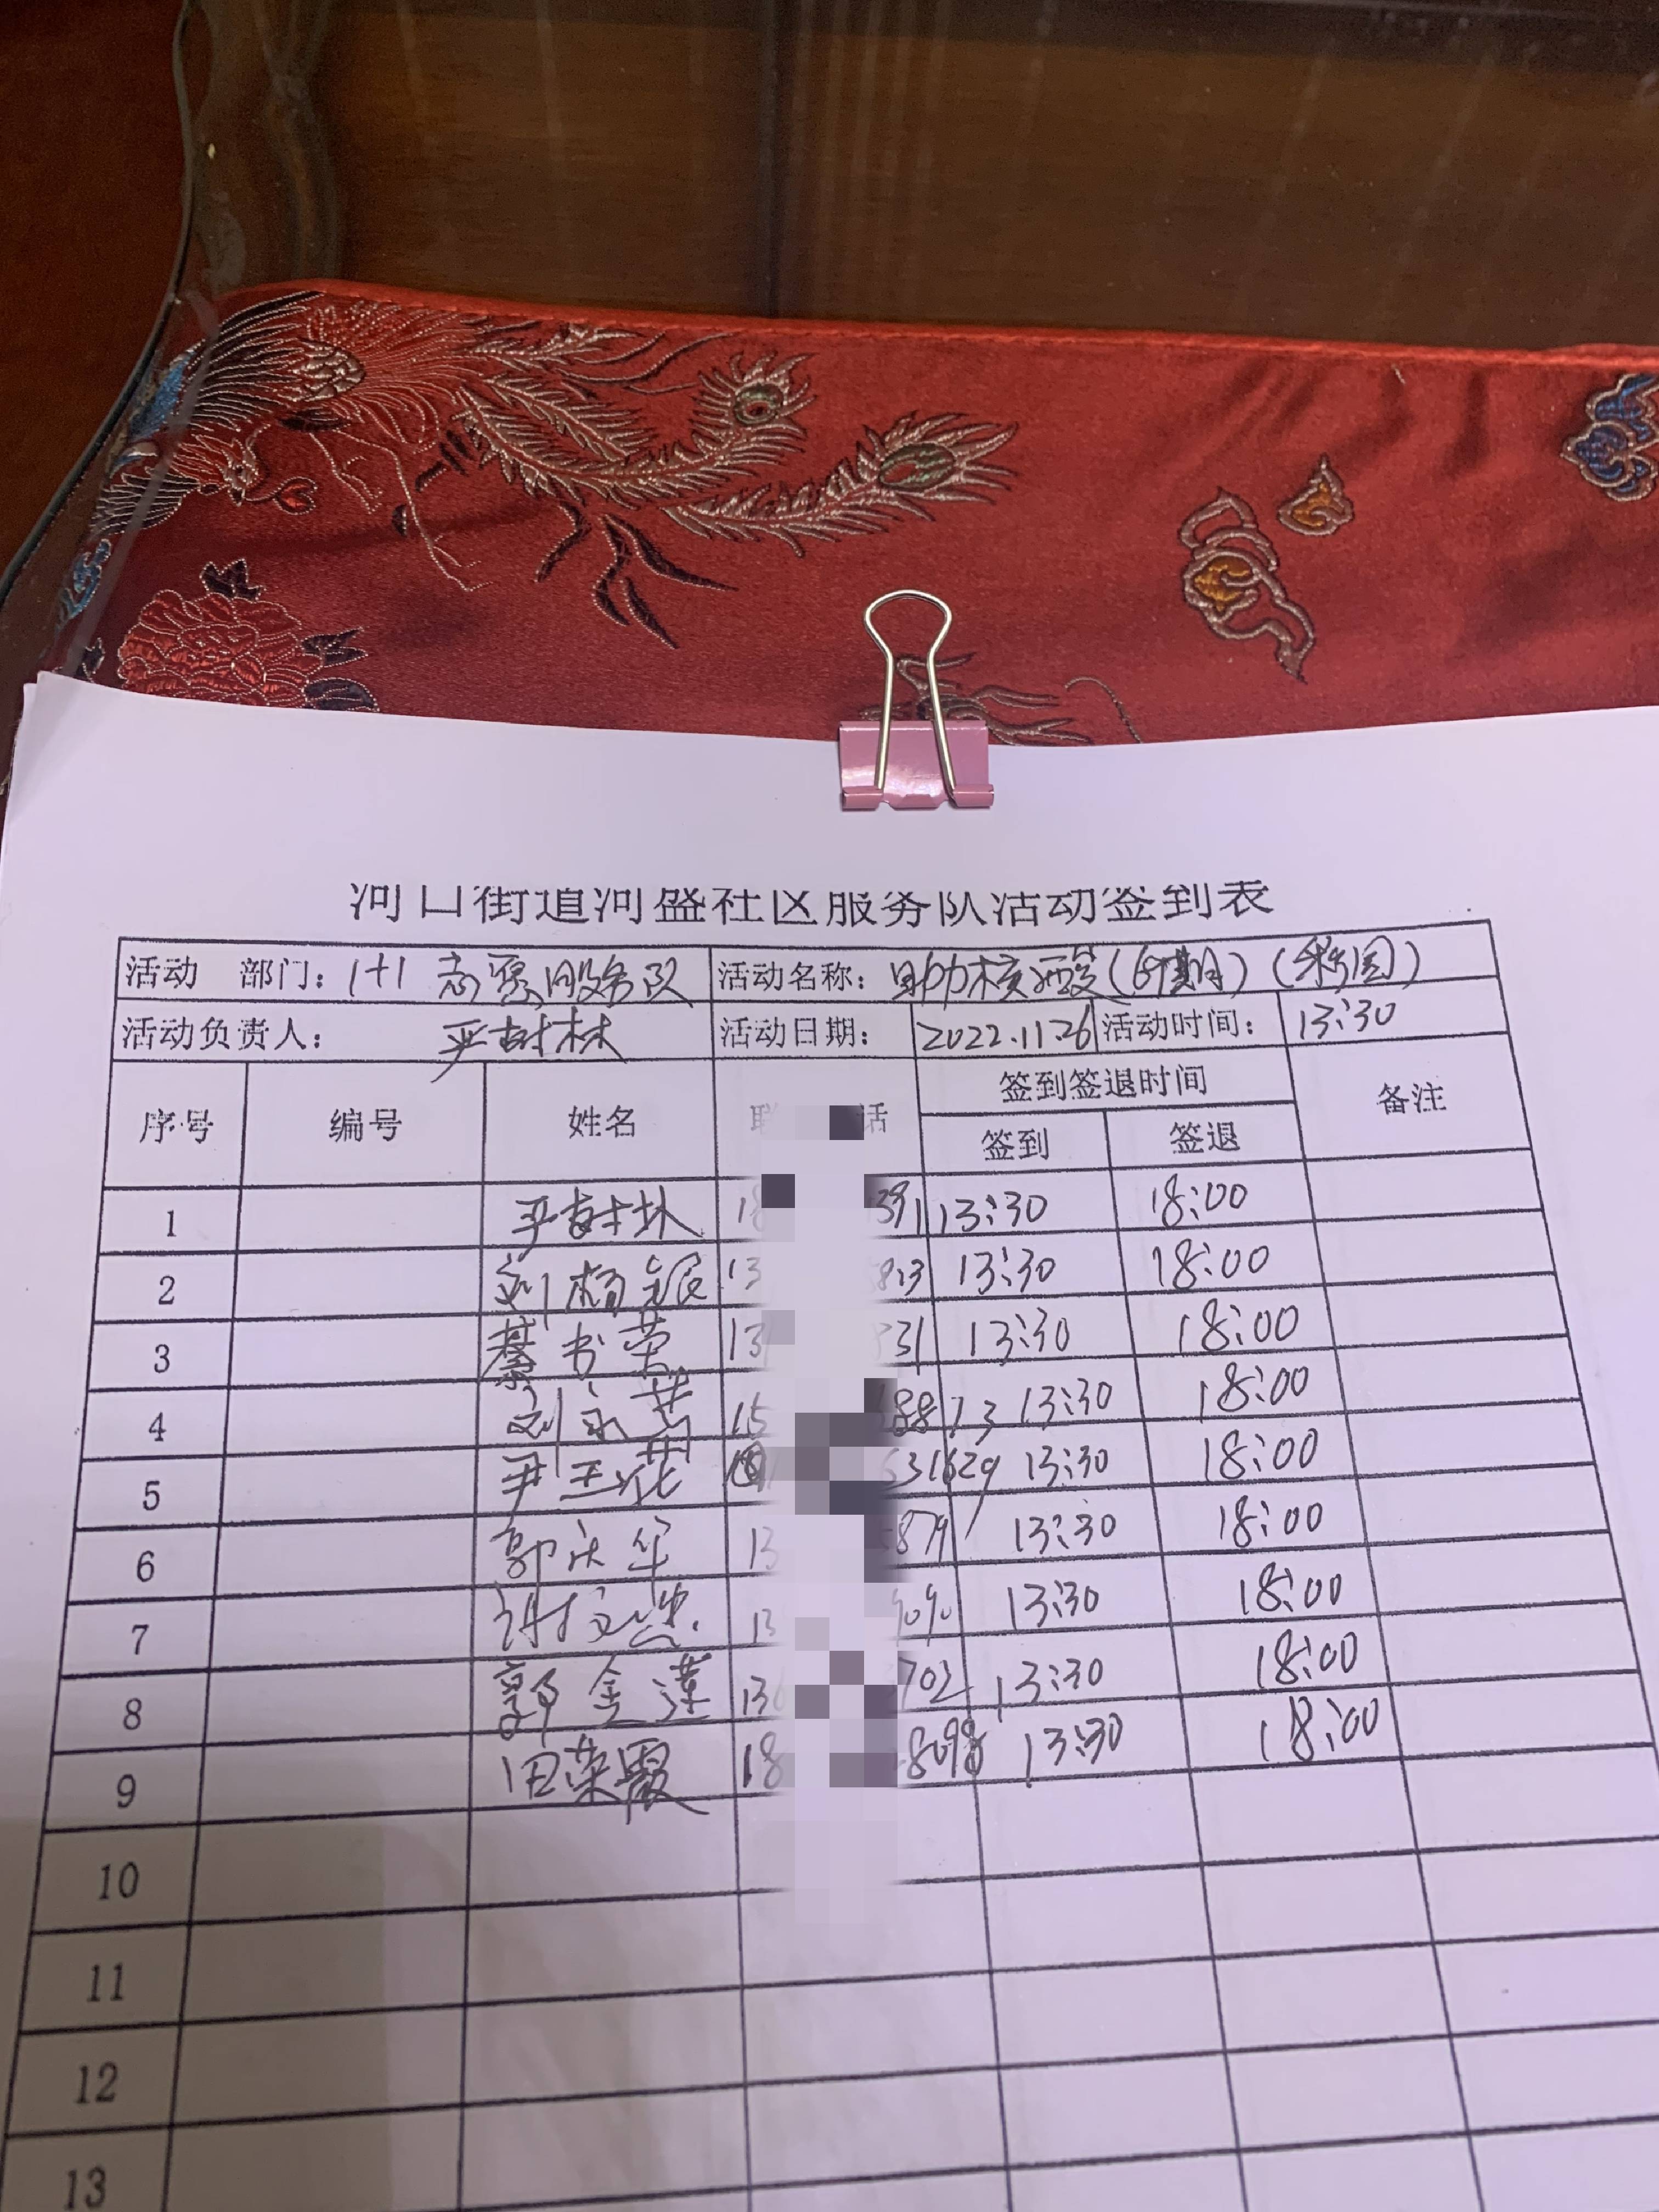 河口街道河盛社区服务队活动签到表
活动 部门：1+1 志愿服务队 活动名称：助核酸（6期）（彩园）
活动负责人：严树林 活动日期：2022.11.26 活动时间：13:30
序号 编号 姓名 联 话 签到签退时间 备注
签到 签退
1 严树林 18 391 13:30 18:00
2 刘杨银 13 813 13:30 18:00
3 綦书荣 13 831 13:30 18:00
4 刘永芳 15 8873 13:30 18:00
5 尹玉花 631629 13:30 18:00
6 郭庆华 13 879 13:30 18:00
7 13 9090 13:30 18:00
8 郭金莲 136 702 13:30 18:00
9 田荣霞 18 8098 13:30 18:00
10
11
12
13